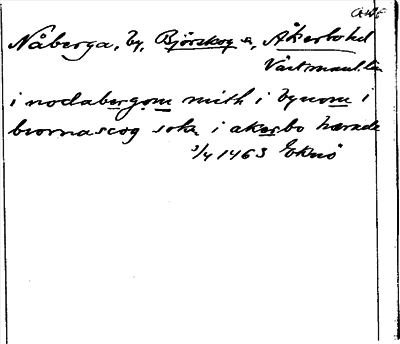 AWE
Nåberga, by, Björskog sn, Åkerbo hd
Västmanl. län
i nodabergom mith i bynom i
biornascog sokn i akerbo hærade
3/4 1463 Eknö